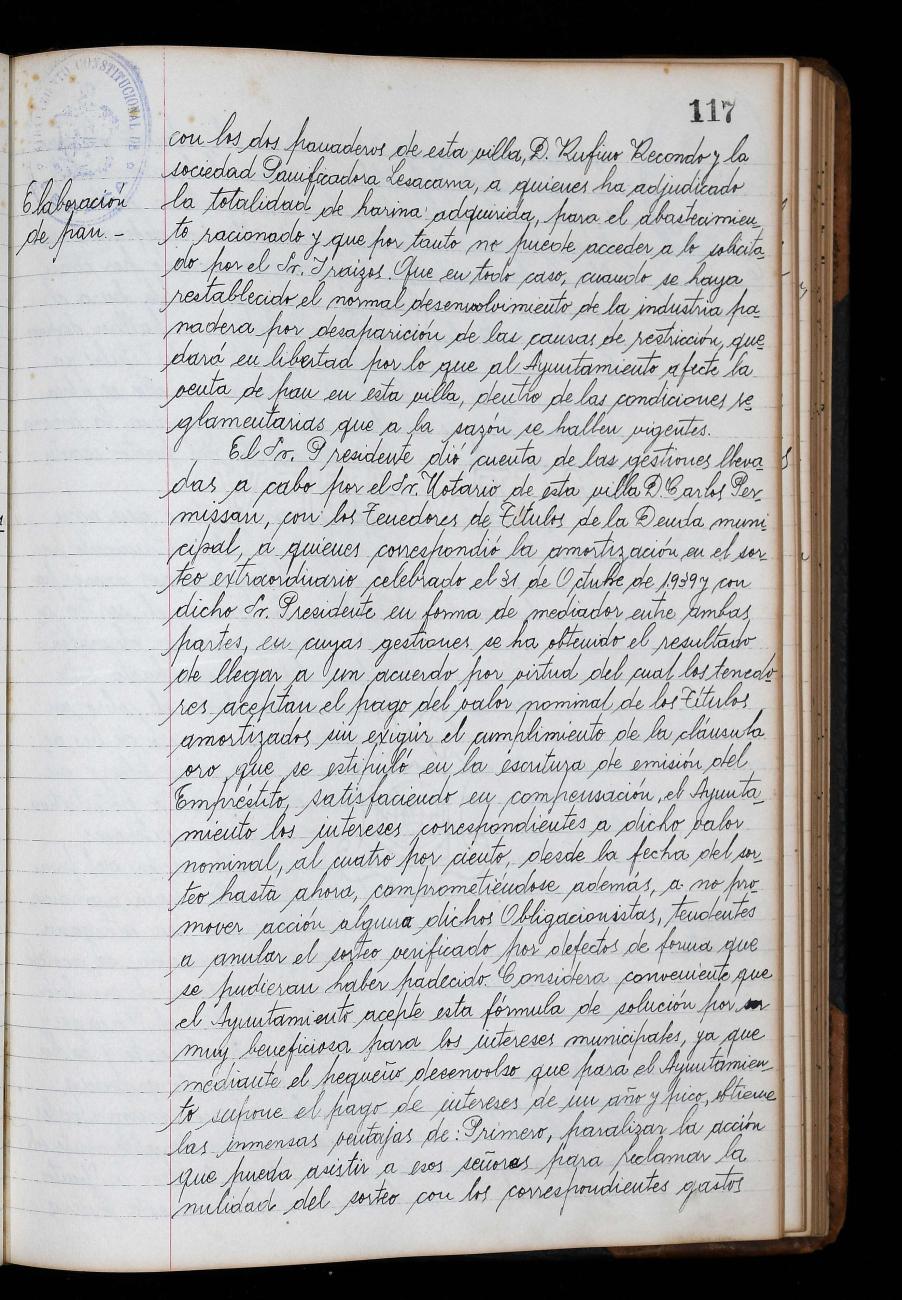 117
AYUNTAMIENTO CONSTITUCIONAL DE
Elaboración
de pan. -
con los dos panaderos de esta villa, D. Rufino Recondo y la
sociedad Panificadora Lesacarra, a quienes ha adjudicado
la totalidad de harina adquirida, para el abastecimien-
to racionado y que por tanto no puede acceder a lo solicita-
do por el Sr. Iraizos. Que en todo caso, cuando se haya
restablecido el normal desenvolvimiento de la industria pa-
nadera por desaparición de las causas de restricción, que-
dará en libertad por lo que al Ayuntamiento afecte la
venta de pan en esta villa, dentro de las condiciones re-
glamentarias que a la sazón se hallen vigentes.
El Sr. Presidente dió cuenta de las gestiones lleva-
das a cabo por el Sr. Notario de esta villa D. Carlos Per-
missan, con los Tenedores de Títulos de la Deuda muni-
cipal, a quienes correspondió la amortización en el sor-
teo extraordinario celebrado el 31 de Octubre de 1939 y con
dicho Sr. Presidente en forma de mediador entre ambas
partes, en cuyas gestiones se ha obtenido el resultado
de llegar a un acuerdo por virtud del cual los tenedo-
res aceptan el pago del valor nominal de los Títulos
amortizados sin exigir el cumplimiento de la cláusula
oro que se estipuló en la escritura de emisión del
Empréstito, satisfaciendo en compensación, el Ayunta-
miento los intereses correspondientes a dicho valor
nominal, al cuatro por ciento, desde la fecha del sor-
teo hasta ahora, comprometiéndose además, a no pro-
mover acción alguna dichos Obligacionistas, tendentes
a anular el sorteo verificado por defectos de forma que
se pudieran haber padecido. Considera conveniente que
el Ayuntamiento acepte esta fórmula de solución por ser
muy beneficiosa para los intereses municipales, ya que
mediante el pequeño desenvolso que para el Ayuntamien-
to supone el pago de intereses de un año y pico, obtiene
las inmensas ventajas de: Primero, paralizar la acción
que pueda asistir a esos señores para reclamar la
nulidad del sorteo con los correspondientes gastos